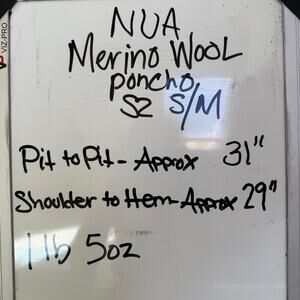 VIZ-PRO
NUA
Merino Wool
poncho
SZ S/M
Pit to Pit - Approx 31"
Shoulder to Hem - Approx 29"
1 lb 5oz